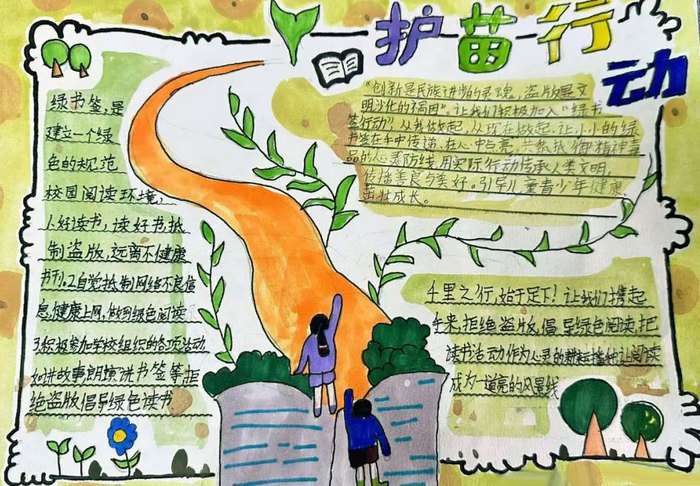 护苗行动
绿书签,是
建立一个绿
色的规范
校园阅读环境,
1.好读书,读好书,抵
制盗版,远离不健康
书刊。2.自觉抵制网络不良信
息,健康上网,做到绿色阅读
3.积极参加学校组织的各项活动
如讲故事朗读讲书签等拒
绝盗版倡导绿色读书
"创新是民族进步的灵魂,盗版是文
明火化的不同因"。让我们积极加入"绿书
签行动",从我做起,从现在做起,让小小的绿
书签在手中传递,在心中占亮,共筑抵御精神毒
品的心灵防线,用实际行动传承人类文明,
传播善良与美好。引导儿童青少年健康
茁壮成长。
千里之行,始于足下!让我们携起
手来,拒绝盗版,倡导绿色阅读,把
读书活动作为心灵的耕耘播种让阅读
成为一道亮的风景线